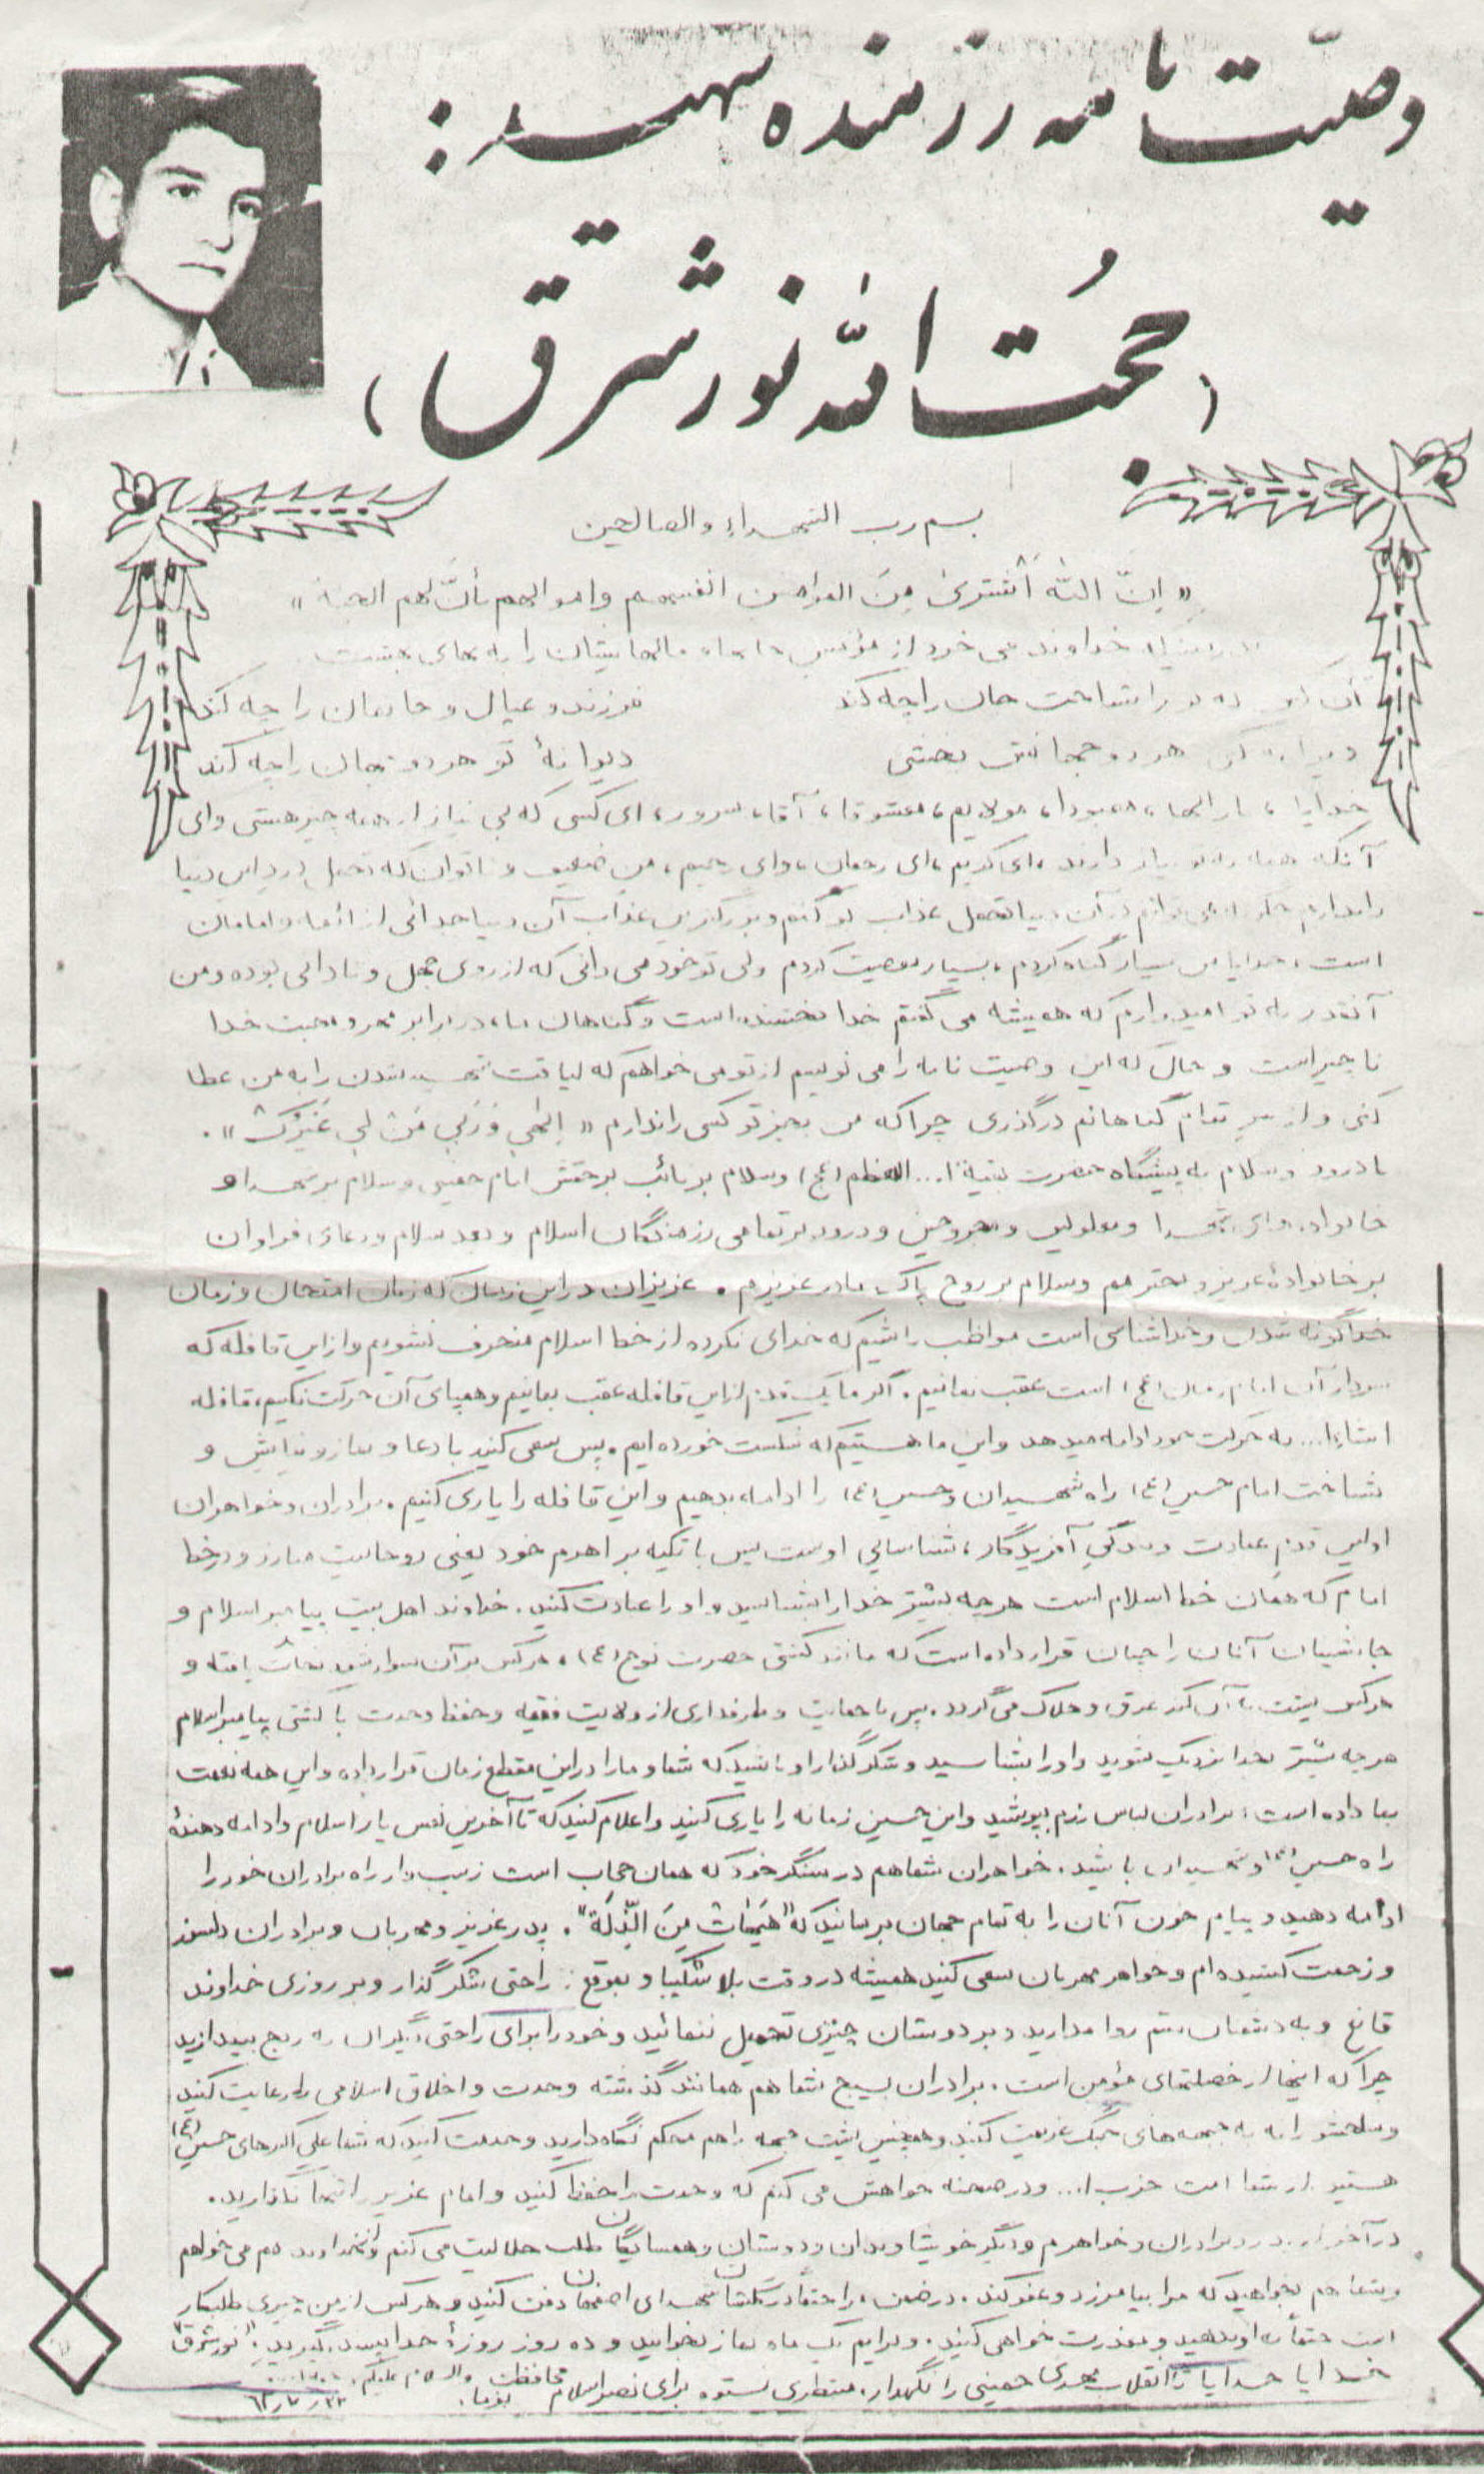 وصیّت نامه رزمنده شهید :
(حجُت الله نور شرق)
بسم رب الشهداء والصالحین
« اِنّ اللهَ اَشْتَریٰ مِنَ المؤمنین انفسهم و اموالهم بأنَّ لهم الجنة »
خداوند می خرد از مؤمنین جانها و مالهایشان را به بهای بهشت
آن کس که تو را شناخت جان را چه کند
فرزند و عیال و خانمان را چه کند
دیوانه کنی هر دو جهانش بخشی
دیوانهٔ تو هر دو جهان را چه کند
خدایا ، بارالها ، معبودا ، مولایم ، معشوقا ، آقا ، سرور ، ای کسی که بی نیاز از همه چیز هستی وای
آنکه همه به تو نیاز دارند ، ای کریم ، ای رحمان ، وای رحیم ، من ضعیف و ناتوان که تحمل درد این دنیا
را ندارم چگونه می توانم در آن دنیا تحمل عذاب تو کنم و بزرگترین عذاب آن دنیا جدائی از ائمه و امامان
است ، خدایا من بسیار گناه کردم ، بسیار معصیت کردم ولی تو خود می دانی که از روی جهل و نادانی بوده و من
آنقدر به تو امیدوارم که همیشه می گفتم خدا بخشنده است و گناهان ما ، در برابر مهر و محبت خدا
ناچیز است و حال که این وصیت نامه را می نویسم از تو می خواهم که لیاقت شهید شدن را به من عطا
کنی و از سر تمام گناهانم درگذری چرا که من بجز تو کسی را ندارم « اِلهٰی وَ رَبّی مَنْ لی غَیْرُکْ » .
با درود و سلام به پیشگاه حضرت بقیة ا... العظم (عج) و سلام بر نائب بر حقش امام خمینی و سلام بر شهدا و
خانواده های شهدا و معلولین و مجروحین و درود بر تمامی رزمندگان اسلام و بعد سلام و دعای فراوان
بر خانوادهٔ عزیز و محترمم وسلام بر روح پاک مادر عزیزم . عزیزان در این زمان که زمان امتحان و زمان
خداگونه شدن و خداشناسی است مواظب باشیم که خدای نکرده از خط اسلام منحرف نشویم و از این قافله که
سردار آن امام زمان (عج) است عقب نمانیم . اگر ما یک قدم از این قافله عقب بمانیم و همپای آن حرکت نکنیم ، قافله
انشاءا... به حرکت خود ادامه میدهد و این ما هستیم که شکست خورده ایم . پس سعی کنید با دعا و نماز و نیایش و
شناخت امام حسین (ع) راه شهیدان و حسین (ع) را ادامه بدهیم و این قافله را یاری کنیم . برادران و خواهران
اولین قدم عبادت و بندگی آفریدگار ، شناسایی اوست پس با تکیه بر اهرم خود یعنی روحانیت مبارز و در خط
امام که همان خط اسلام است هرچه بیشتر خدا را بشناسید و او را عبادت کنید . خداوند اهل بیت پیامبر اسلام و
جانشینان آنان را چنان قرار داده است که مانند کشتی حضرت نوح (ع) ، هرکس بر آن سوار شود نجات یافته و
هرکس پشت به آن کند غرق و هلاک می گردد . پس با حمایت و طرفداری از ولایت فقیه و حفظ وحدت با کشتی پیامبر اسلام
هرچه بیشتر بخدا نزدیک شوید و او را بشناسید و شکرگذار او باشید که شما و ما را در این مقطع زمان قرار داده و این همه نعمت
بما داده است ؛ برادران لباس رزم بپوشید و این حسین زمانه را یاری کنید و اعلام کنید که تا آخرین نفس یار اسلام و ادامه دهندهٔ
راه حسین (ع) و شهیدان باشید . خواهران شما هم در سنگر خود که همان حجاب است زینب وار راه برادران خود را
ادامه دهید و پیام خون آنان را به تمام جهان برسانید که "هَیهات مِنَ الذِّلَة" . پدر عزیز و مهربان و برادران دلسوز
و زحمت کشیده ام و خواهر مهربان سعی کنید همیشه در وقت بلا شکیبا و بموقع راحتی شکر گذار و بر روزی خداوند
قانع و به دشمنان ستم روا مدارید و بر دوستان چیزی تحمیل ننمائید و خود را برای راحتی دیگران به رنج بیندازید
چرا که اینها از خصلتهای مؤمن است . برادران بسیج شما هم همانند گذشته وحدت و اخلاق اسلامی را رعایت کنید
و به جبهه های جنگ عزیمت کنید و همچنین پشت جبهه را هم محکم نگاه دارید و خدمت کنید که شما علی اکبرهای حسین (ع)
هستید . از شما امت حزب ا... و در صحنه خواهش می کنم که وحدت را حفظ کنید و امام عزیز را تنها نگذارید .
در آخر از پدر و برادران و خواهرم و دیگر خویشاوندان و دوستان و همسایگان طلب حلالیت می کنم و از خداوند هم می خواهم
و شما هم بخواهید که مرا بیامرزد و عفو کند . در ضمن مرا حتماً در گلستان شهدای اصفهان دفن کنید و هرکس از من چیزی طلبکار
است حتماً به او بدهید و معذرت خواهی کنید . و برایم یک ماه نماز بخوانید و ده روز روزهٔ بگیرید . "نورشرق"
خدایا خدایا تا انقلاب مهدی خمینی را نگهدار . منتظری نستوه برای نصر اسلام محافظت بفرما . والسلام علیکم
۶۲/۷/۲۲